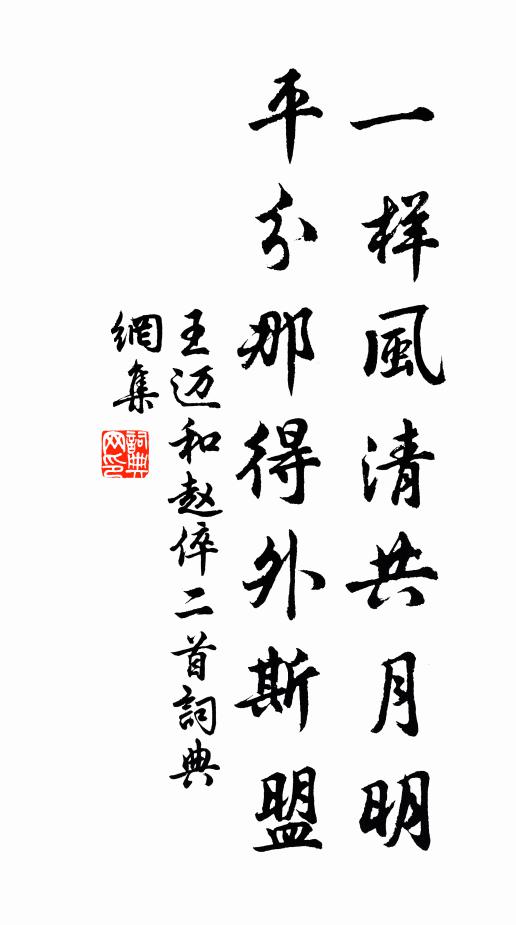 一样風清共月明
平分那得外斯盟
王迈和赵倅二首詞典
網集
詞典網印